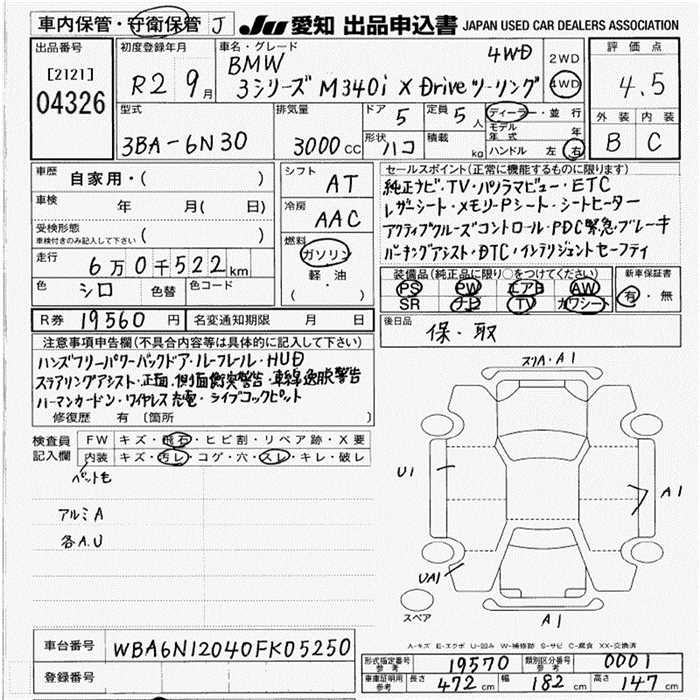 車内保管・守衛保管 J JU 愛知 出品申込書 JAPAN USED CAR DEALERS ASSOCIATION
出品番号
[2121]
04326
初度登録年月
R2 9月
車名・グレード
BMW 4WD
3シリーズ M340i X Drive ツーリング
2WD
4WD
評価点
4.5
外装 内装
B C
型式
3BA-6N30
排気量
3000cc
ドア 5
形状 ハコ
定員 5人
積載 kg
ディーラー・並行
モデル年式 年
ハンドル 左 右
車歴 自家用・( )
車検 年 月( 日)
受検形態
車検付きのみ記入して下さい ( )
走行 6万0千522km
色 シロ 色替 色コード
シフト AT
冷房 AAC
燃料
ガソリン
軽油
( ・ )
セールスポイント(正常に機能するものに限ります)
純正ナビ・TV・パノラマビュー・ETC
レザーシート・メモリーPシート・シートヒーター
アクティブクルーズコントロール・PDC緊急・ブレーキ
パーキングアシスト・DTC・インテリジェントセーフティ
装備品(純正品に限り○をつけてください)
PS PW エアB AW
SR ナビ TV カワシート
新車保証書
有・無
R券 19560円 名変通知期限 月 日
後日品
保・取
注意事項申告欄(不具合内容等は具体的に記入して下さい)
ハンズフリーパワーバックドア・ルーフレール・HUD
ステアリングアシスト・正面、側面衝突警告・車線逸脱警告
ハーマンカードン・ワイヤレス充電・ライブコックピット
修復歴 有 [箇所 ]
検査員記入欄
FW キズ・飛石・ヒビ割・リペア跡・X要
内装 キズ・汚レ・コゲ・穴・スレ・キレ・破レ
ペット毛
アルミA
各A.U
スリA・A1
U1
A1
UA1
A1
スペア
A-キズ E-エクボ U-凹み W-補修跡 S-サビ C-腐食 XX-交換済
車台番号 WBA6N12040FK05250
登録番号
形式指定番号参考 19570 類別区分番号参考 0001
車庫証明用参考 長さ 472cm 幅 182cm 高さ 147cm